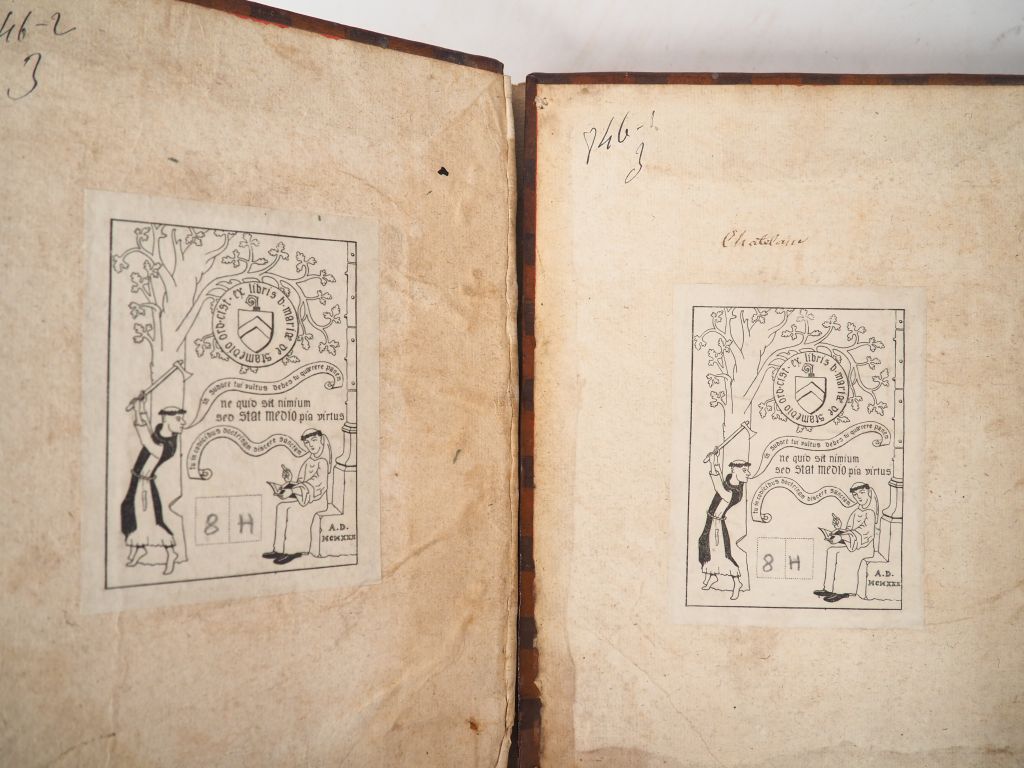 46-2
3
ex libris b·mariæ de stamedio ord·cist·
in sudore tui vultus debes tu quærere panem
ne quid sit nimium
sed stat medio pia virtus
tu in codicibus doctrinam discere sanctam
8 H
A.D.
MCMXXX
746-
3
Chatelain
ex libris b·mariæ de stamedio ord·cist·
in sudore tui vultus debes tu quærere panem
ne quid sit nimium
sed stat medio pia virtus
tu in codicibus doctrinam discere sanctam
8 H
A.D.
MCMXXX